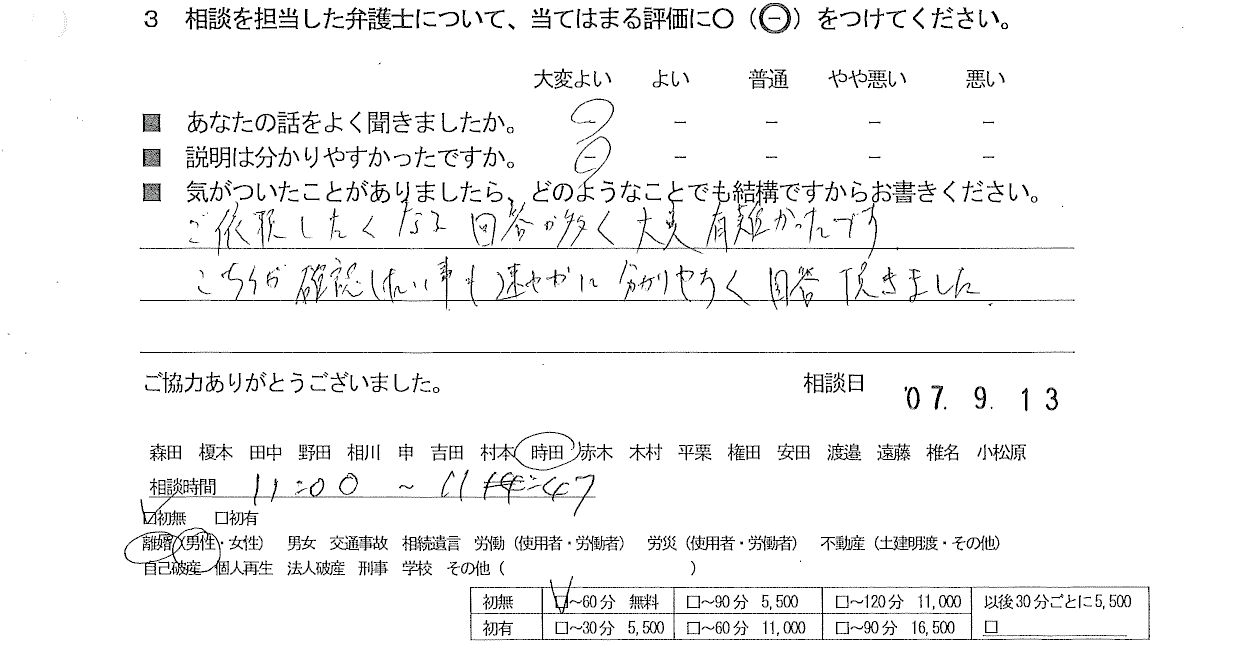 3 相談を担当した弁護士について、当てはまる評価に〇（㊀）をつけてください。
大変よい よい 普通 やや悪い 悪い
■ あなたの話をよく聞きましたか。 － － － － －
■ 説明は分かりやすかったですか。 － － － － －
■ 気がついたことがありましたら、どのようなことでも結構ですからお書きください。
ご依頼したくなる回答が多く大変有難かったです
こちらが確認したい事も速やかに分かりやすく回答頂きました.
ご協力ありがとうございました。 相談日 '07. 9. 13
森田 榎本 田中 野田 相川 申 吉田 村本 時田 赤木 木村 平栗 権田 安田 渡邉 遠藤 椎名 小松原
相談時間 11:00 ~ 11:47
☑初無 □初有
離婚（男性・女性） 男女 交通事故 相続遺言 労働（使用者・労働者） 労災（使用者・労働者） 不動産（土建明渡・その他）
自己破産 個人再生 法人破産 刑事 学校 その他（ ）
初無 ☑～60分 無料 □～90分 5,500 □～120分 11,000 以後30分ごとに5,500
初有 □～30分 5,500 □～60分 11,000 □～90分 16,500 □